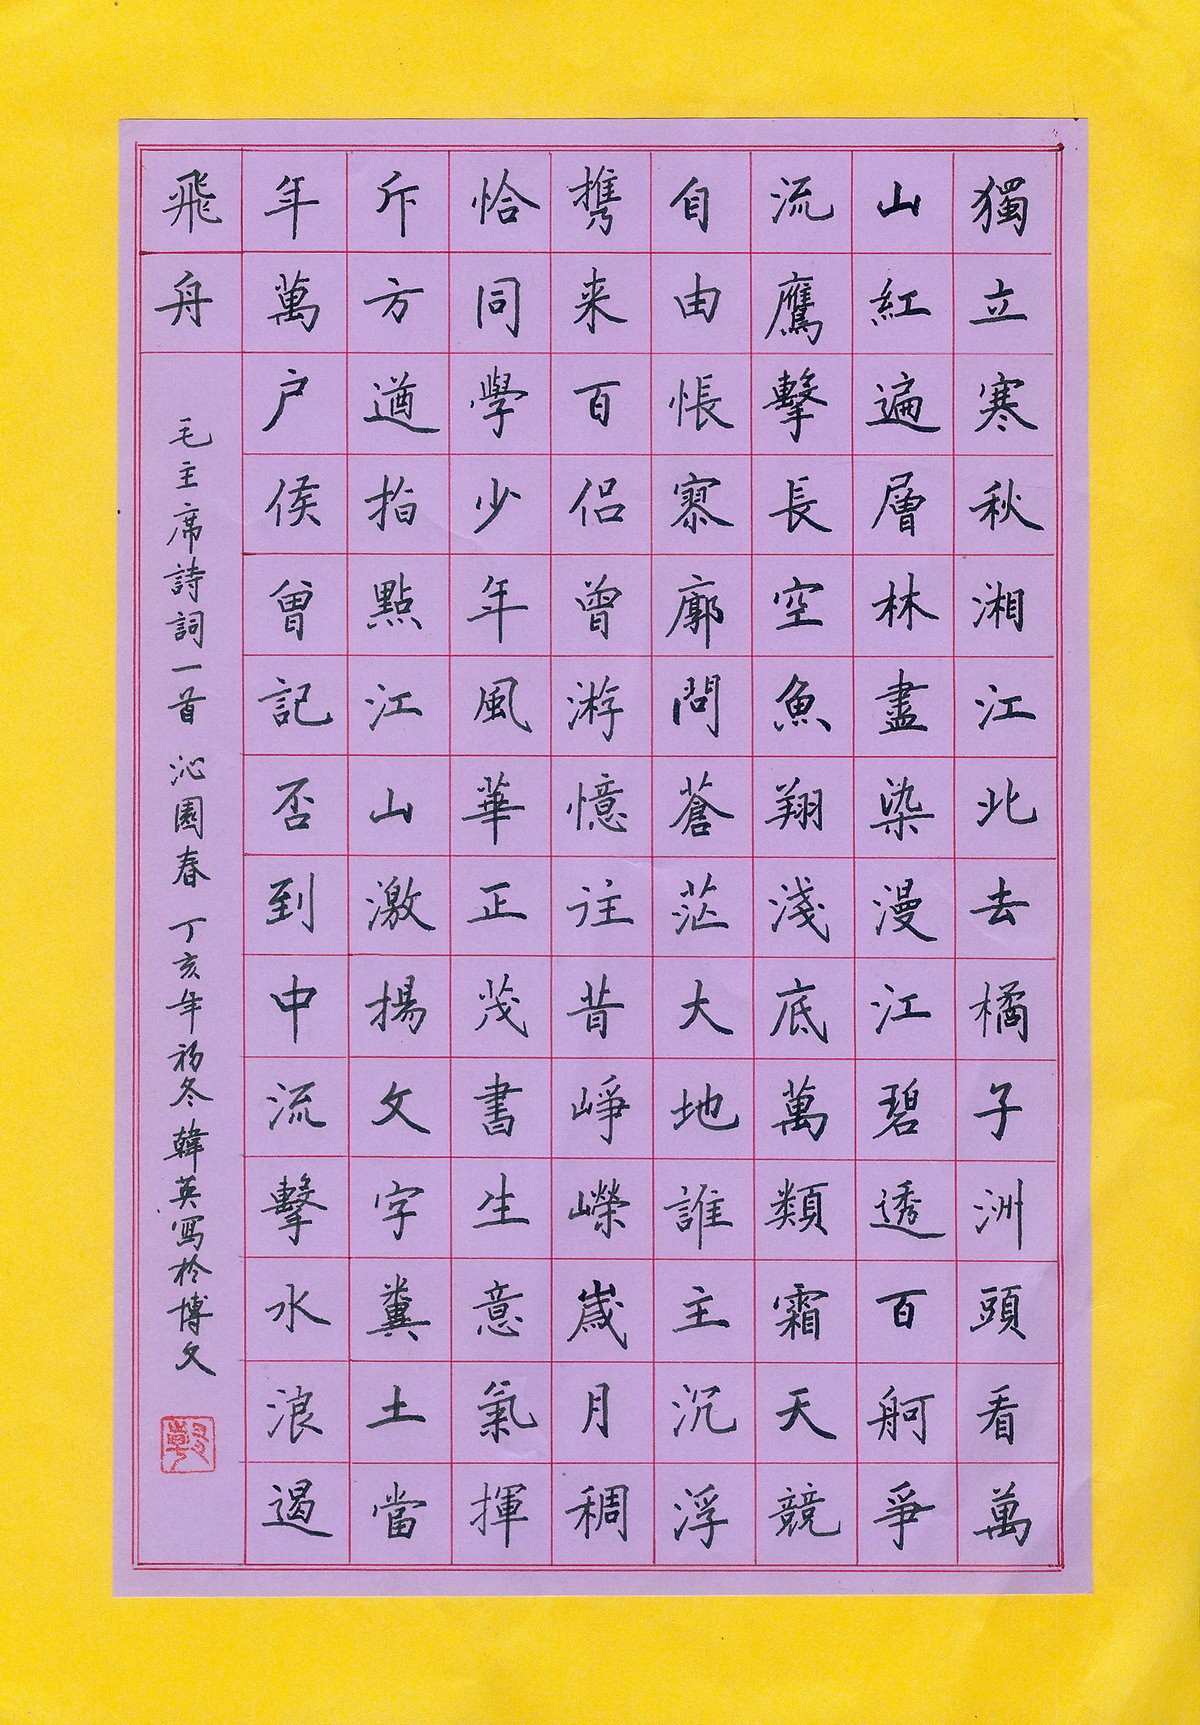 獨立寒秋湘江北去橘子洲頭看萬
山紅遍層林盡染漫江碧透百舸爭
流鷹擊長空魚翔淺底萬類霜天競
自由悵寥廓問蒼茫大地誰主沉浮
携来百侶曾游憶往昔崢嶸歲月稠
恰同學少年風華正茂書生意氣揮
斥方遒指點江山激揚文字糞土當
年萬户侯曾記否到中流擊水浪遏
飛舟
毛主席詩詞一首 沁園春 丁亥年初冬 韓英寫於博文
韓